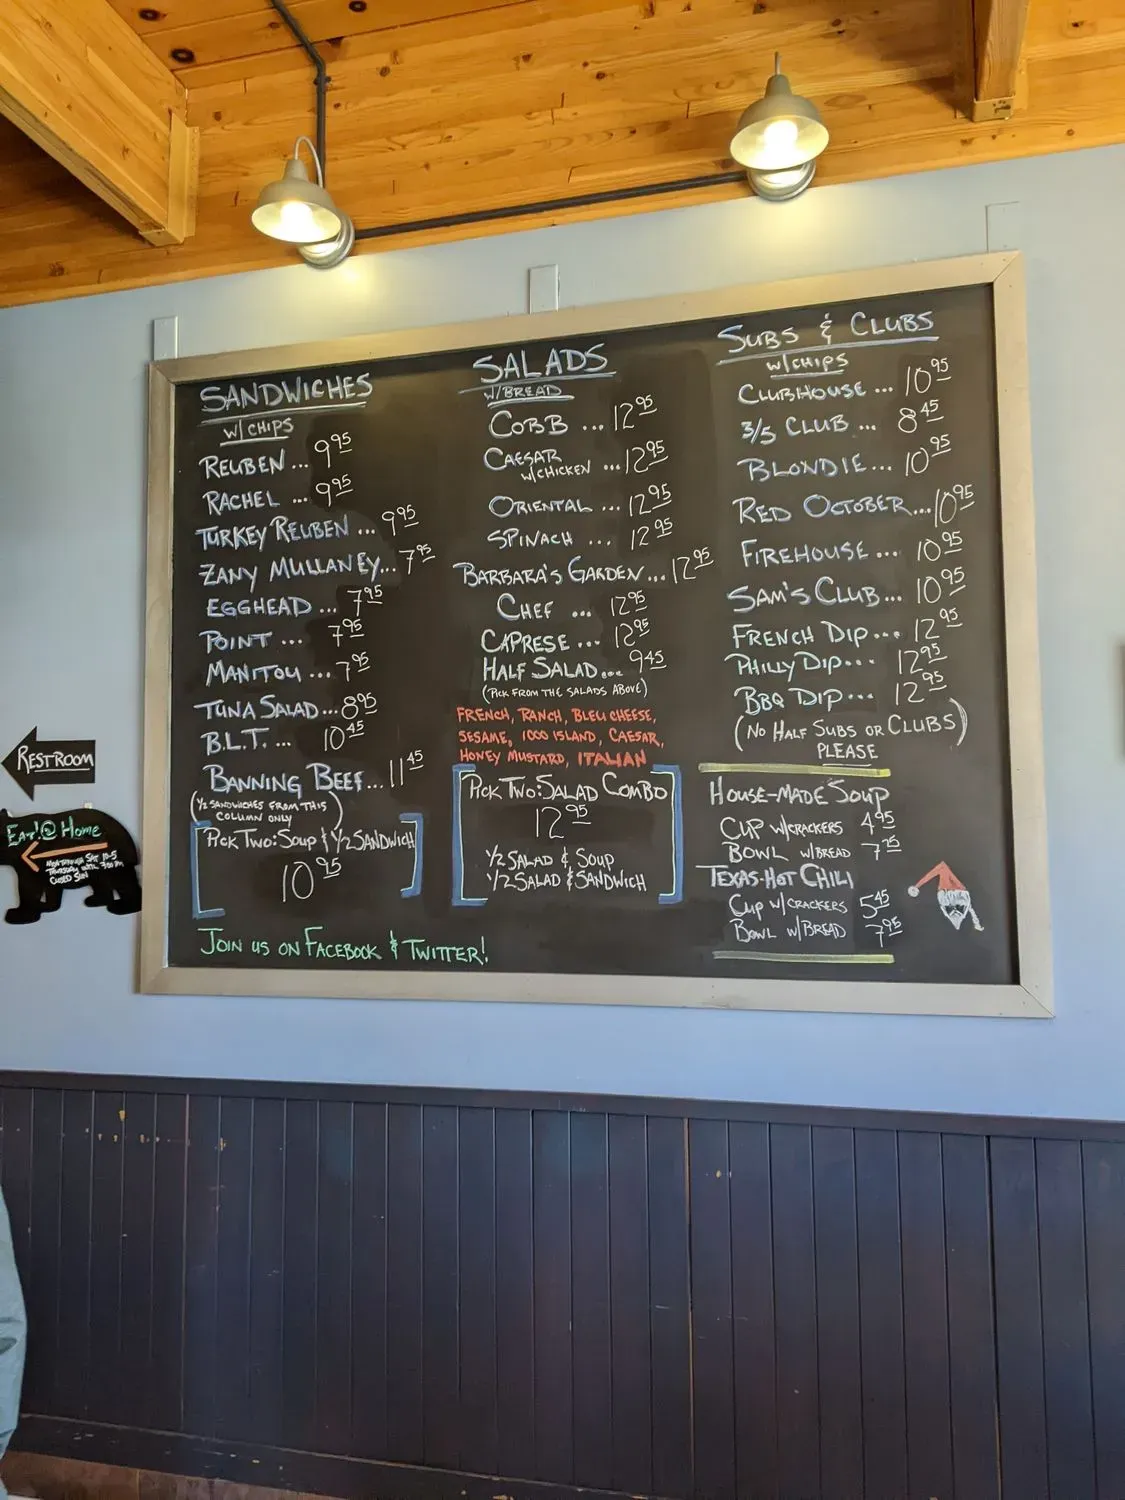 SANDWICHES
W/ CHIPS
REUBEN ... 9 95
RACHEL ... 9 95
TURKEY REUBEN ... 9 95
ZANY MULLANEY... 7 95
EGGHEAD ... 7 95
POINT ... 7 95
MANITOU ... 7 95
TUNA SALAD ... 8 95
B.L.T. ... 10 45
BANNING BEEF... 11 45
(1/2 SANDWICHES FROM THIS
COLUMN ONLY)
PICK TWO: SOUP & 1/2 SANDWICH
10 95
JOIN US ON FACEBOOK & TWITTER!
SALADS
W/ BREAD
COBB ... 12 95
CAESAR
W/ CHICKEN ... 12 95
ORIENTAL ... 12 95
SPINACH ... 12 95
BARBARA'S GARDEN ... 12 95
CHEF ... 12 95
CAPRESE ... 12 95
HALF SALAD ... 9 45
(PICK FROM THE SALADS ABOVE)
FRENCH, RANCH, BLEU CHEESE,
SESAME, 1000 ISLAND, CAESAR,
HONEY MUSTARD, ITALIAN
PICK TWO: SALAD COMBO
12 95
1/2 SALAD & SOUP
1/2 SALAD & SANDWICH
SUBS & CLUBS
W/ CHIPS
CLUBHOUSE ... 10 95
3/5 CLUB ... 8 45
BLONDIE ... 10 95
RED OCTOBER... 10 95
FIREHOUSE ... 10 95
SAM'S CLUB... 10 95
FRENCH DIP... 12 95
PHILLY DIP... 12 95
BBQ DIP... 12 95
(NO HALF SUBS OR CLUBS)
PLEASE
HOUSE-MADE SOUP
CUP W/CRACKERS 4 95
BOWL W/BREAD 7
TEXAS-HOT CHILI
CUP W/CRACKERS 5 45
BOWL W/BREAD 7 95
RESTROOM
EAT! @ Home
SAT 10-5
CLOSED SUN